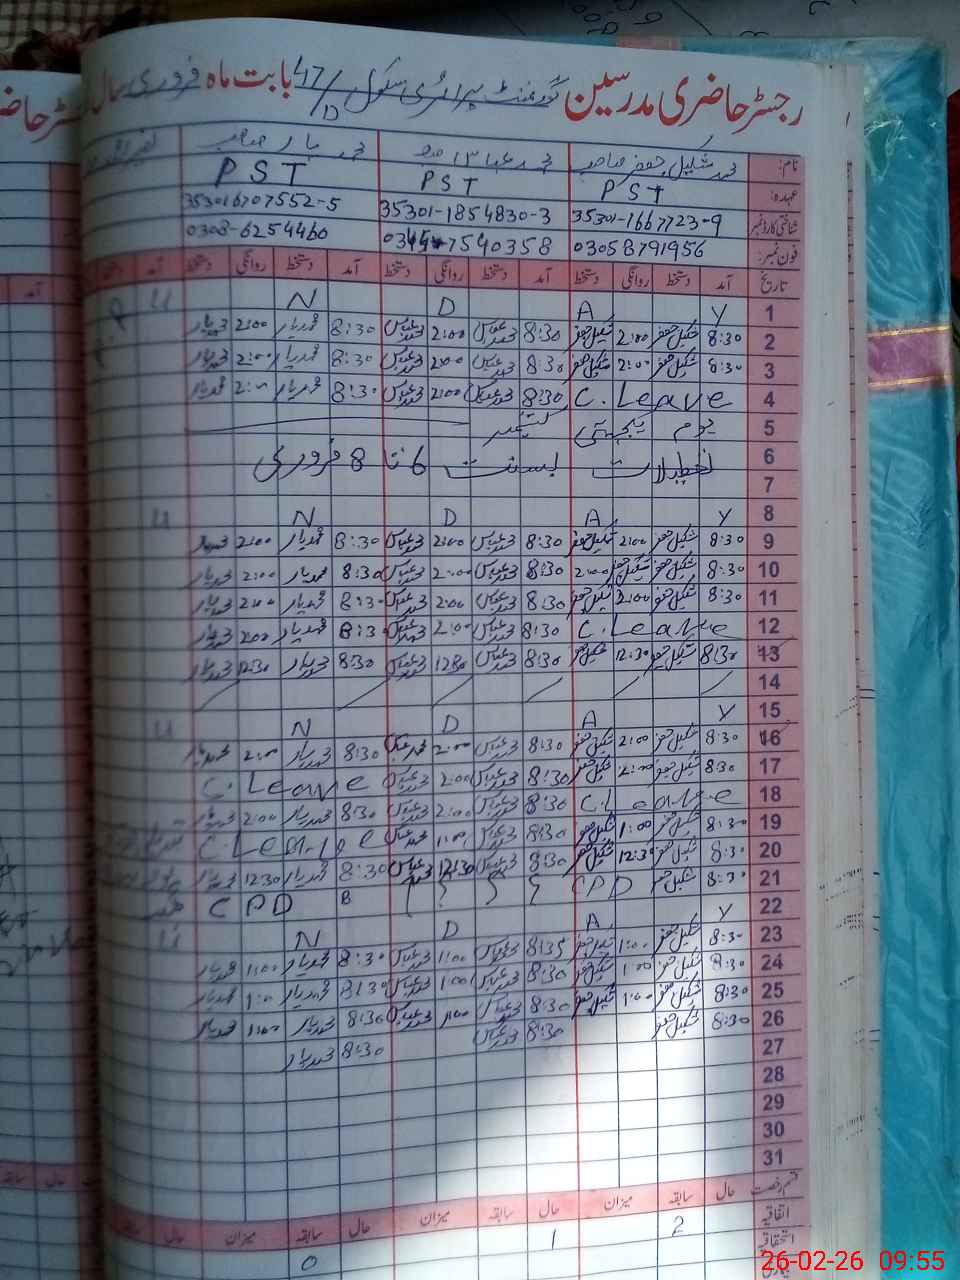 رجسٹر حاضری مدرسین گورنمنٹ پرائمری سکول 47/D بابت ماہ فروری سال
نام: محمد شکیل جعفر صاحب محمد عباس صاحب محمد یار صاحب
عہدہ: PST PST PST
شناختی کارڈ نمبر 35301-1667723-9 35301-1854830-3 353016707552-5
فون نمبر: 03058791956 0344-7540358 0308-6254460
تاریخ آمد دستخط روانگی دستخط آمد دستخط روانگی دستخط آمد دستخط روانگی دستخط آمد
1 Y A D N U
2 8:30 شکیل جعفر 2:00 شکیل جعفر 8:30 محمد عباس 2:00 محمد عباس 8:30 محمد یار 2:00 محمد یار
3 8:30 شکیل جعفر 2:00 شکیل جعفر 8:30 محمد عباس 2:00 محمد عباس 8:30 محمد یار 2:00 محمد یار
4 C. Leave 8:30 محمد عباس 2:00 محمد عباس 8:30 محمد یار 2:00 محمد یار
5 یوم یکجہتی کشمیر
6 تعطیلات بسنت 6 تا 8 فروری
7
8 Y A D N U
9 8:30 شکیل جعفر 2:00 شکیل جعفر 8:30 محمد عباس 2:00 محمد عباس 8:30 محمد یار 2:00 محمد یار
10 8:30 شکیل جعفر شکیل جعفر 2:00 8:30 محمد عباس 2:00 محمد عباس 8:30 محمد یار 2:00 محمد یار
11 8:30 شکیل جعفر 2:00 شکیل جعفر 8:30 محمد عباس 2:00 محمد عباس 8:30 محمد یار 2:00 محمد یار
12 C. Leave 8:30 محمد عباس 2:00 محمد عباس 8:30 محمد یار 2:00 محمد یار
13 8:30 شکیل جعفر 12:30 شکیل جعفر 8:30 محمد عباس 12:30 محمد عباس 8:30 محمد یار 12:30 محمد یار
14
15 Y A D N U
16 8:30 شکیل جعفر 2:00 شکیل جعفر 8:30 محمد عباس 2:00 محمد عباس 8:30 محمد یار 2:00 محمد یار
17 8:30 شکیل جعفر 2:00 شکیل جعفر 8:30 محمد عباس 2:00 محمد عباس C. Leave
18 C. Leave 8:30 محمد عباس 2:00 محمد عباس 8:30 محمد یار 2:00 محمد یار
19 8:30 شکیل جعفر 1:00 شکیل جعفر 8:30 محمد عباس 1:00 محمد عباس C. Leave
20 8:30 شکیل جعفر 12:30 شکیل جعفر 8:30 محمد عباس 12:30 محمد عباس 8:30 محمد یار 12:30 محمد یار
21 8:30 شکیل جعفر CPD CPD
22 Y A D N U
23 8:30 شکیل جعفر 1:00 شکیل جعفر 8:35 محمد عباس 1:00 محمد عباس 8:30 محمد یار 1:00 محمد یار
24 8:30 شکیل جعفر 1:00 شکیل جعفر 8:30 محمد عباس 1:00 محمد عباس 8:30 محمد یار 1:00 محمد یار
25 8:30 شکیل جعفر 1:00 شکیل جعفر 8:30 محمد عباس 1:00 محمد عباس 8:30 محمد یار 1:00 محمد یار
26 8:30 شکیل جعفر 8:30 محمد عباس 8:30 محمد یار
27
28
29
30
31
قسم رخصت حال سابقہ میزان حال سابقہ میزان حال سابقہ میزان حال
اتفاقیہ 2 1 0
استحقاقیہ
26-02-26 09:55